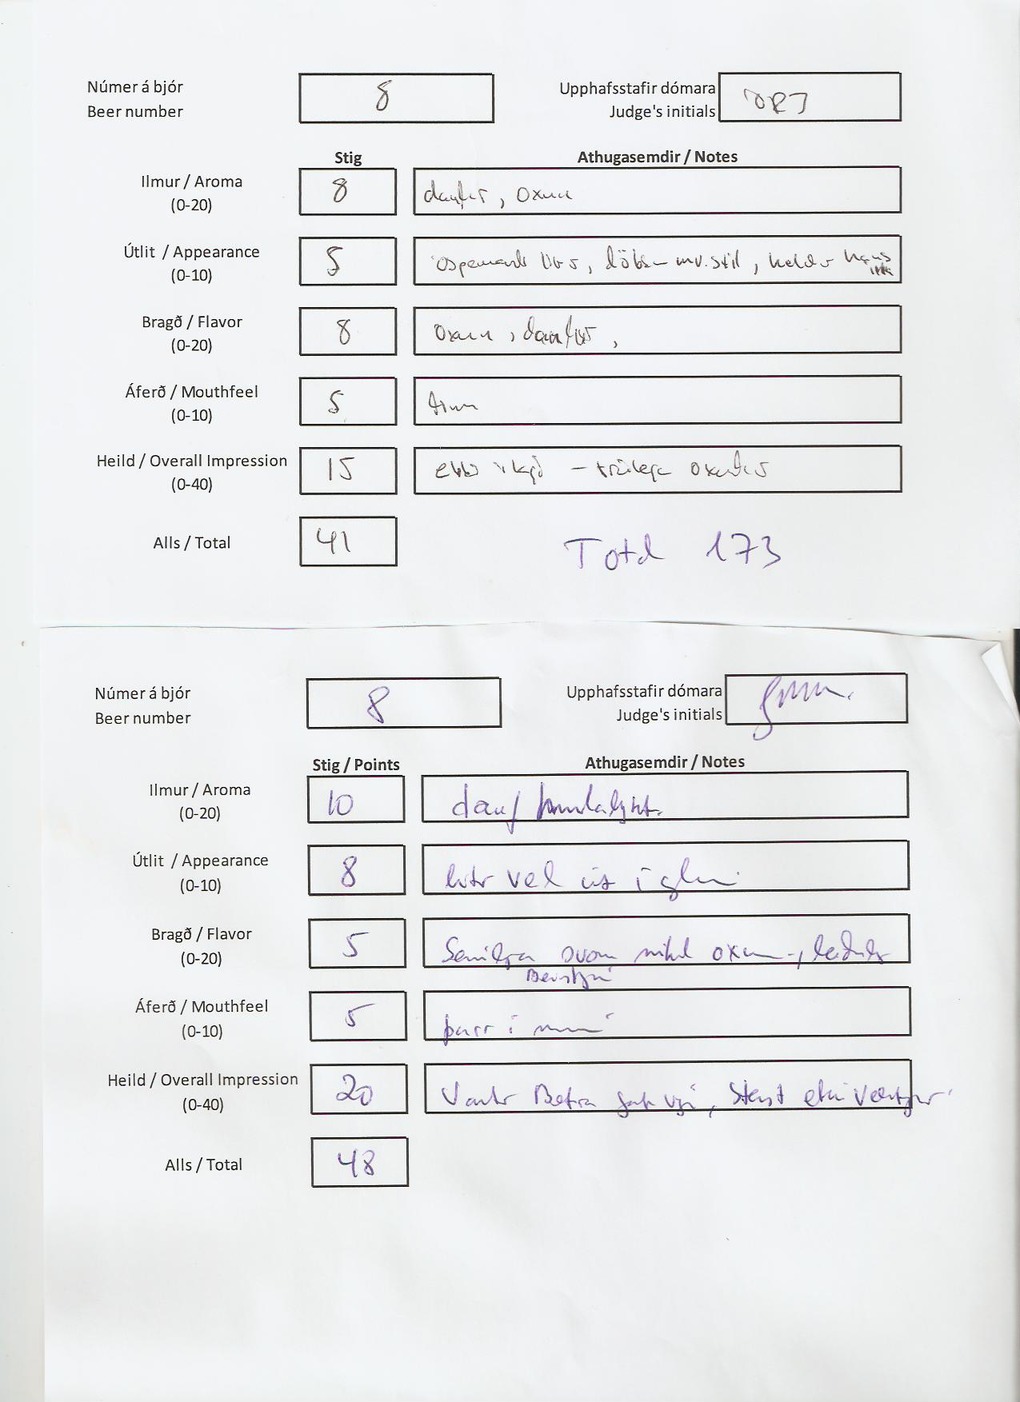 Númer á bjór
Beer number
8
Upphafsstafir dómara
Judge's initials
ÖRJ
Stig
Athugasemdir / Notes
Ilmur / Aroma
(0-20)
8
daufur, oxun
Útlit / Appearance
(0-10)
5
óspennandi litur, dökkur m.v. stíl, heldur haus
Bragð / Flavor
(0-20)
8
oxun, daufur,
Áferð / Mouthfeel
(0-10)
5
Heild / Overall Impression
(0-40)
15
ekki í lagi - trúlega oxaður
Alls / Total
41
Total 173
Númer á bjór
Beer number
8
Upphafsstafir dómara
Judge's initials
Stig / Points
Athugasemdir / Notes
Ilmur / Aroma
(0-20)
10
dauf humlalykt.
Útlit / Appearance
(0-10)
8
lítur vel út í glasi
Bragð / Flavor
(0-20)
5
mikil oxun
Áferð / Mouthfeel
(0-10)
5
þurr í munni
Heild / Overall Impression
(0-40)
20
Vantar Betra, stenst ekki væntingar
Alls / Total
48